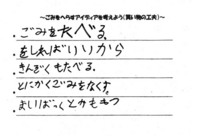 ～ごみをへらすアイディアを考えよう(買い物の工夫)～
・ごみを大べる
をしればいいから
きんぞくもたべる。
とにかくごみをなくす。
よしりばっくとかももつ